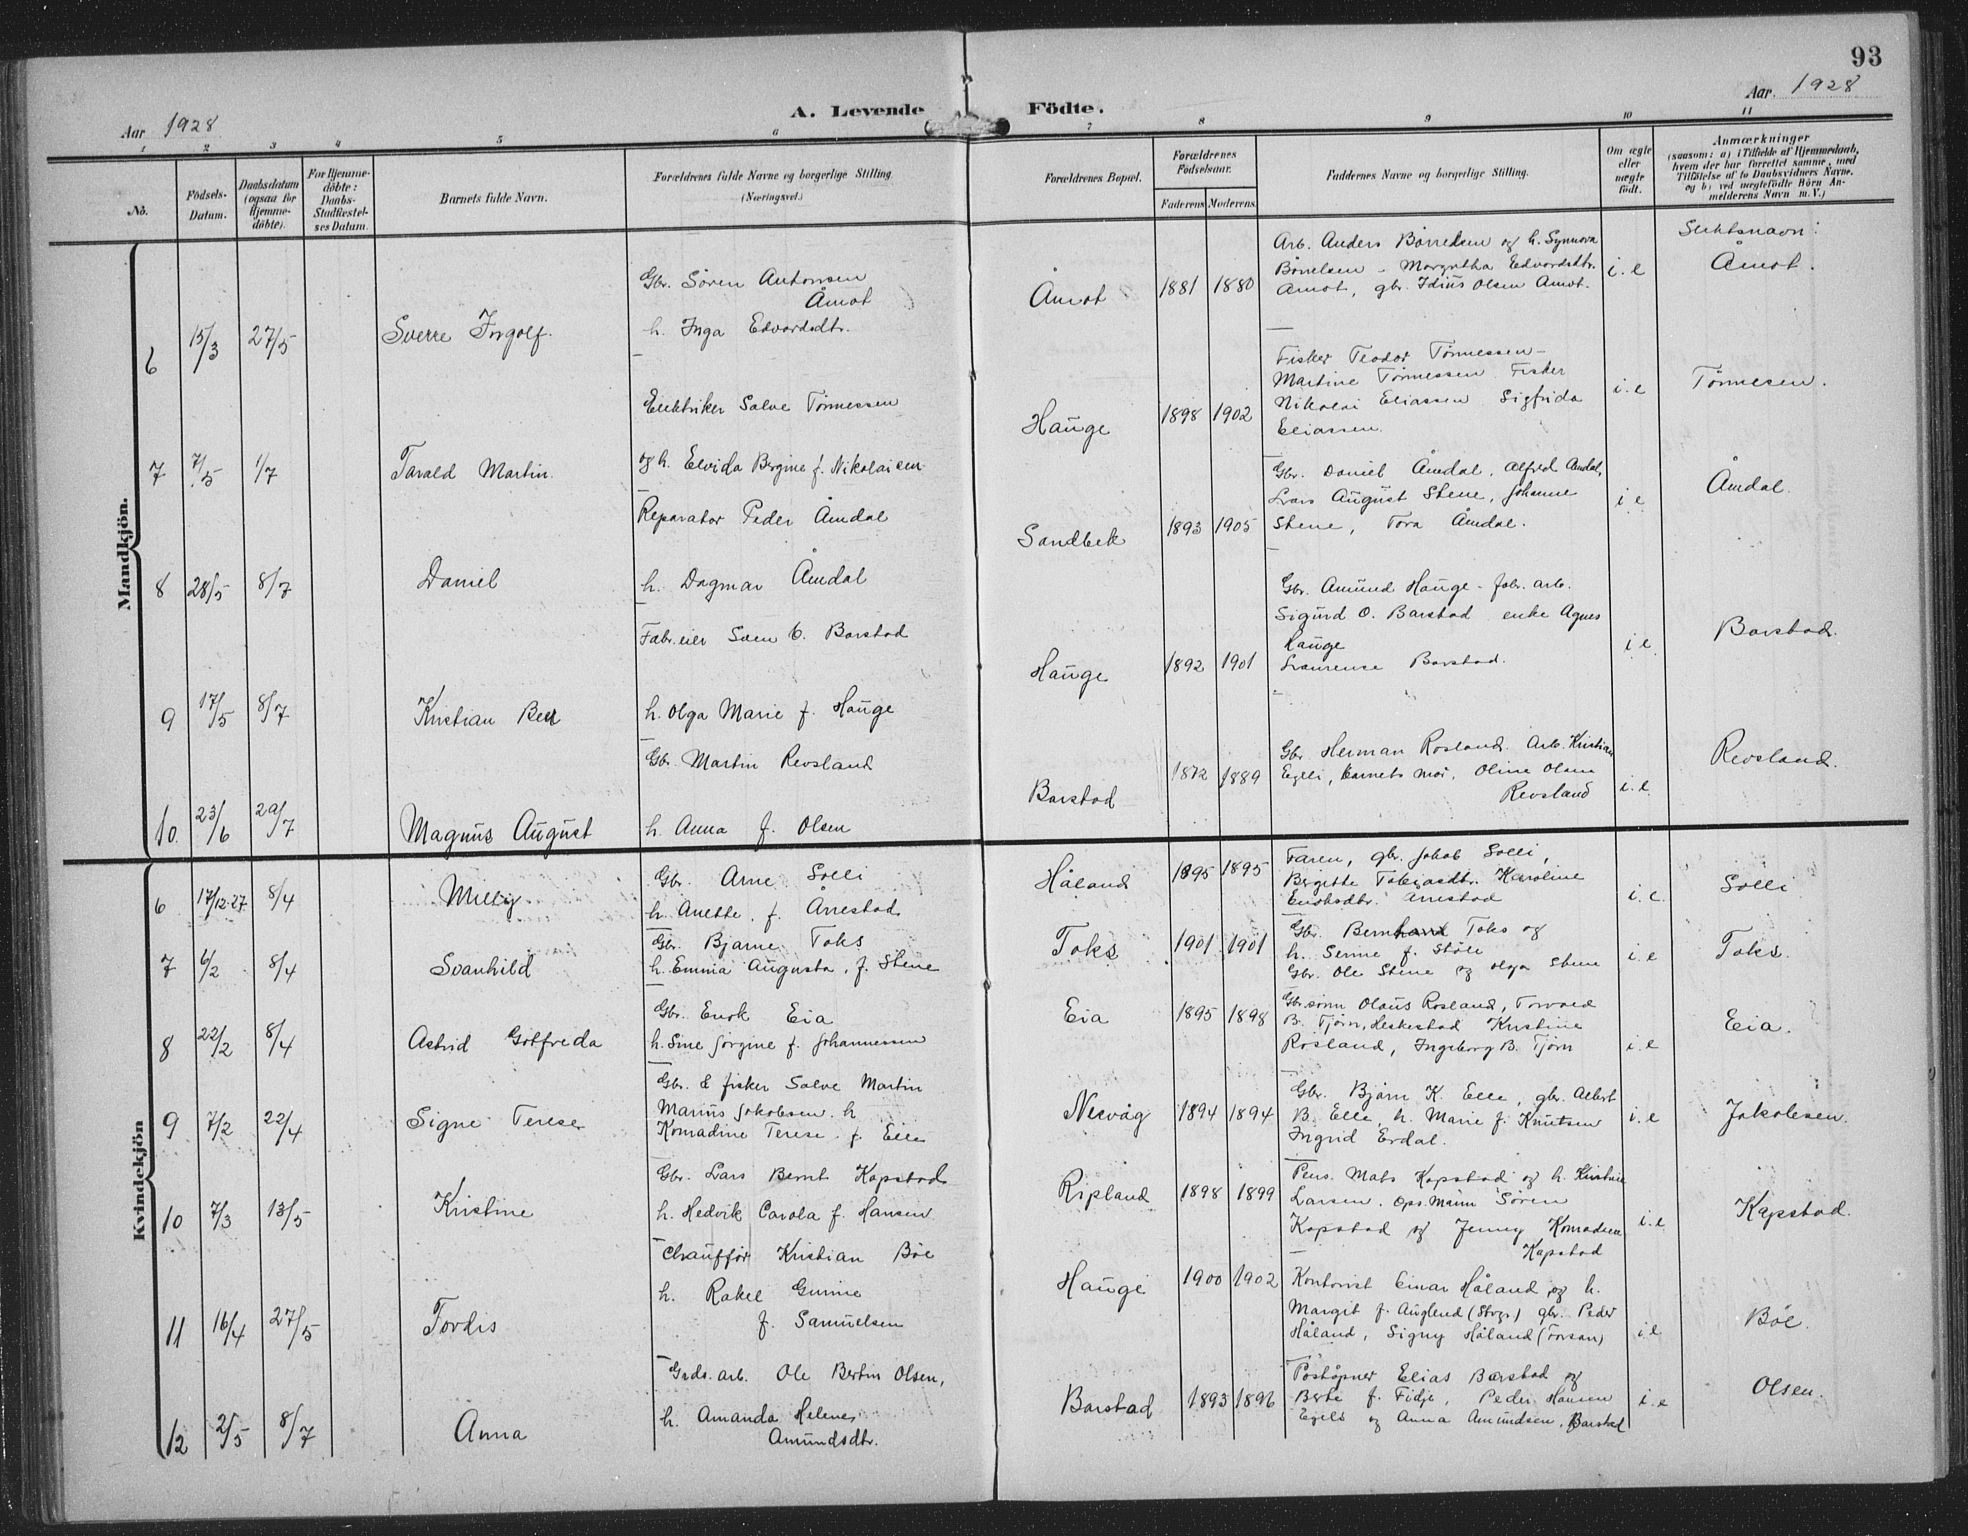 93
Aar 1928
A. Levende Födte.
Aar. 1928
1 2 3 4 5 6 7 8 9 10 11
No.
Födsels-
Datum.
Daabsdatum
(ogsaa for
Hjemme-
døbte).
For Hjemme-
døbte:
Daabs-
Stadfæstel-
ses Datum.
Barnets fulde Navn.
Forældrenes fulde Navne og borgerlige Stilling.
(Næringsvei.)
Forældrenes Bopæl.
Forældrenes
Födselsaar.
Faderens Moderens.
Faddernes Navne og borgerlige Stilling.
Om ægte
eller
uægte
födt.
Anmærkninger
(saasom: a) i Tilfælde af Hjemmedaab,
hvem der har forrettet samme, med
Tilföielse af to Daabsvidners Navne,
og b) ved uægtefödte Börn An-
melderens Navn m. V.)
Mandkjön.
6 15/3 27/5 Sverre Ingolf.
Gbr. Sören Antonsen
Åmot
h. Inga Edvardsdtr.
Åmot 1881 1880
Arb. Anders Bönelsen og h. Synnøva
Bönelsen - Margretha Edvardsdtr.
Åmot, gbr. Idius Olsen Åmot.
i. e
Slektsnavn:
Åmot.
7 7/5 1/7 Tarald Martin.
Elektriker Salve Tönnessen
og h. Elvida Bergine f. Nikolaisen
Hauge 1898 1902
Fisker Teodor Tönnessen -
Martine Tönnessen Fisker
Nikolai Eliassen Sigfrida
Eliassen
i. e
Tönnesen.
8 28/5 8/7 Daniel
Reparatør Peder Åmdal
h. Dagmar Åmdal
Sandbek 1893 1905
Gbr. Daniel Åmdal, Alfred Åmdal,
Lars August Stene, Johanne
Stene, Tora Åmdal.
i. e
Åmdal.
9 17/5 8/7 Kristian
Fabr. eier Sven C. Barstad
h. Olga Marie f. Hauge
Hauge 1892 1901
Gbr. Amund Hauge - fabr. arb.
Sigurd O. Barstad enke Agnes
Hauge
Laurense Barstad.
i. e.
Barstad.
10. 23/6 29/7 Magnus August
Gbr. Martin Revsland
h. Anna f. Olsen
Barstad 1872 1889
Gbr. Herman Rosland. Arb. Kristian
Egeli, barnets mor, Oline Olsen
Revsland
i. e.
Revsland.
Kvindekjön
6 17/12-27 8/4 Milly
Gbr. Arne Solli
h. Anette f. Årrestad
Håland 1895 1895
Faren, gbr. Jakob Solli,
Bergitte Tobiasdtr. Karoline
Enoksdtr. Årrestad
i. e.
Solli
7 6/2 8/4 Svanhild
Gbr. Bjarne Toks
h. Emma Augusta, f. Stene
Toks 1901 1901
Gbr. Bernhard Toks og
h. Serine f. Stöle
Gbr. Ole Stene og Olga Stene
i. e
Toks.
8 22/2 8/4 Astrid Gotfreda
Gbr. Enok Eia
h. Sine Jørgine f. Johannessen
Eia 1895 1898
Gbr. sönn Olaus Rosland, Torvald
B. Tjörn, Heskestad Kristine
Rosland, Ingeborg B. Tjörn
i. e
Eia.
9 7/2 22/4 Signe Terese
Gbr. & fisker Salve Martin
Marius Jakobsen. h
Konradine Terese f. Elle
Nesvåg 1894 1894
Gbr. Bjarn K. Elle, gbr. Albert
B. Elle, h. Marie f. Knutsen
Ingrid Erdal.
i. e
Jakobsen.
10 7/3 13/5 Kristine
Gbr. Lars Bernt Kapstad
h. Hedvik Carola f. Hansen
Ripland 1898 1899
Pens. Mats Kapstad og h. Kristine
Larsen. Ops.mann Sören
Kapstad og Jenny Konradsen
Kapstad
i. e
Kapstad.
11 16/4 27/5 Tordis
Chauffør Kristian Böe
h. Rakel Gurine
f. Samuelsen
Hauge 1900 1902
Kontorist Einar Håland og h.
Margit f. Auglend (Stvgr) gbr. Peder
Håland, Signy Håland (Torsan)
i. e
Böe.
12 2/5 8/7 Anna
Grds. arb. Ole Bertin Olsen,
h. Amanda Helene
Amundsdtr.
Barstad 1893 1896
Poståpner Elias Barstad og
Berte f. Fidje, Peder Hansen
Egeli og Anna Amundsen, Barstad
i. e
Olsen.